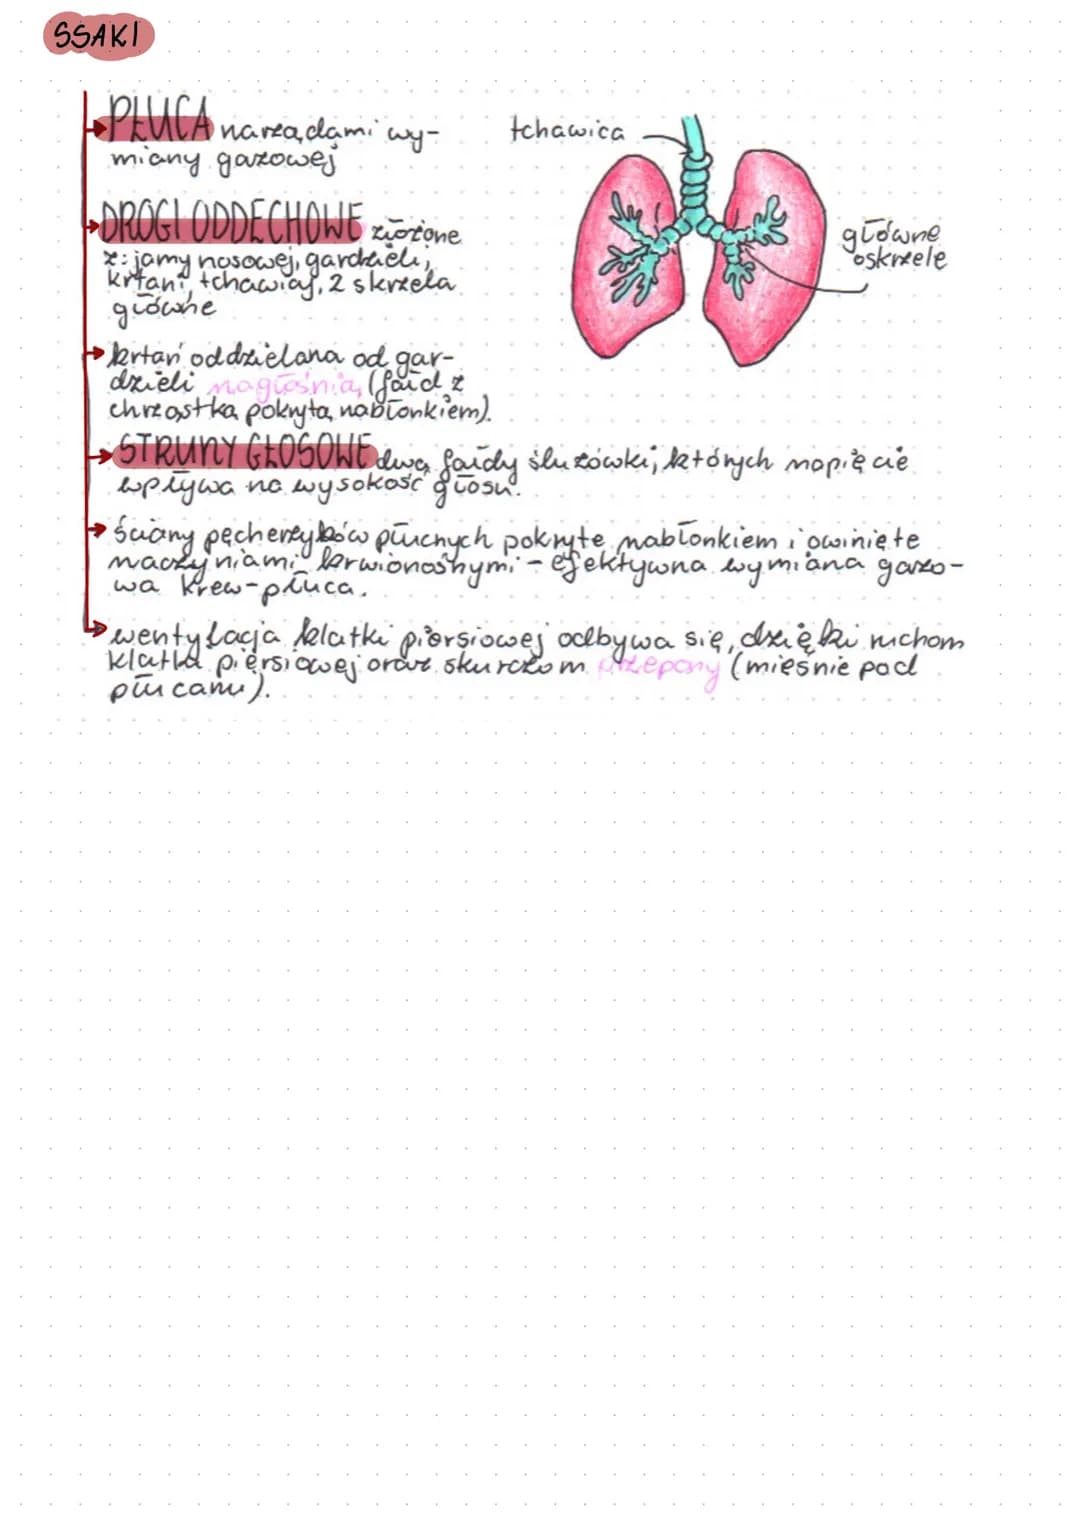 SSAKI
PŁUCA narządami wy-
miany gazowej
tchawica
DROGI ODDECHOWE złożone
z: jamy nosowej, gardzieli,
krtani, tchawicy, 2 skrzela
główne
główne
oskrzele
krtań oddzielana od gar-
dzieli nagłośnią (fałd z
chrząstką pokrytą nabłonkiem).
STRUNY GŁOSOWE dwa fałdy śluzówki, których napięcie
wpływa na wysokość głosu.
ściany pęcherzyków płucnych pokryte nabłonkiem i owinięte
naczyniami krwionośnymi - efektywna wymiana gazo-
wa krew-płuca.
wentylacja klatki piersiowej odbywa się, dzięki ruchom
klatki piersiowej oraz skurczom przepony (mięśnie pod
płucami).